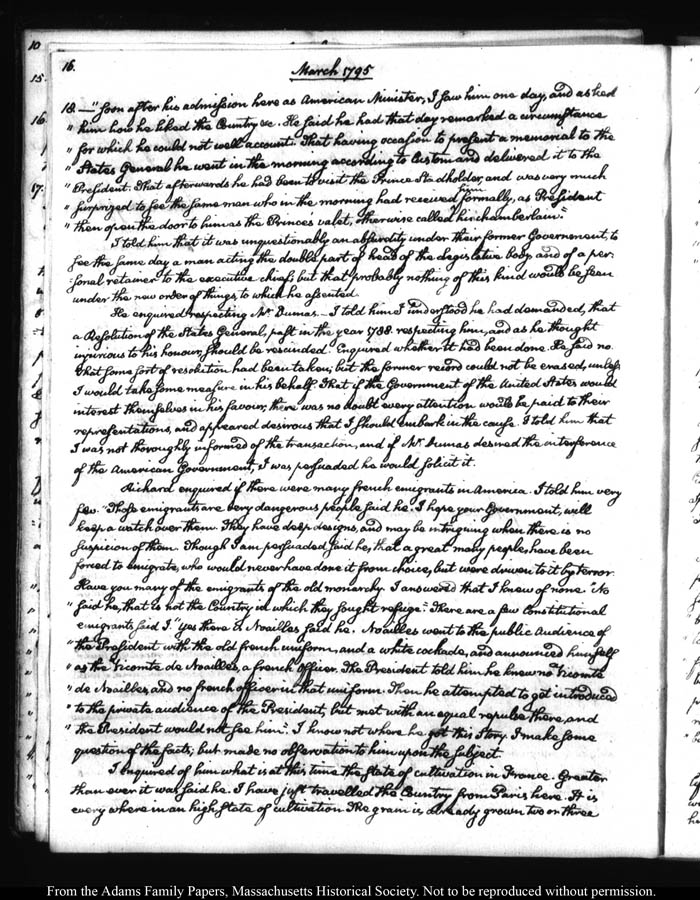 16.
March 1795
18.—"Soon after his admission here as American Minister, I saw him one day, and asked
" him how he liked the Country &c. He said he had that day remarked a circumstance
" for which he could not well account. That having occasion to present a memorial to the
" States General he went in the morning according to Custom and delivered it to the
" President. That afterwards he had been to visit the Prince Stadholder, and was very much
" surprized to see the same man who in the morning had received him formally, as President
" then open the door to him as the Princes valet, otherwise called his chamberlain."
I told him that it was unquestionably an absurdity under their former Government, to
see the same day a man acting the double part of head of the legislative body and of a per-
sonal retainer to the executive chief; but that probably nothing of this kind would be seen
under the new order of things, to which he assented.
He enquired respecting Mr. Dumas.— I told him I understood he had demanded, that
a Resolution of the States General, past in the year 1788. respecting him, and as he thought
injurious to his honour, should be rescinded. Enquired whether it had been done. He said no.
that some sort of resolution had been taken; but the former record could not be erased, unless
I would take some measure in his behalf. That if the Government of the United States would
interest themselves in his favour, there was no doubt every attention would be paid to their
representations, and appeared desirous that I should embark in the cause. I told him that
I was not thoroughly informed of the transaction, and if Mr. Dumas desired the interference
of the American Government, I was persuaded he would solicit it.
Richard enquired if there were many french emigrants in America. I told him very
few. "Those emigrants are very dangerous people said he. I hope your Government, will
keep a watch over them. They have deep designs, and may be intriguing when there is no
suspicion of them. Though I am persuaded, said he, that a great many people have been
forced to emigrate, who would never have done it from choice, but were driven to it by terror.
Have you many of the emigrants of the old monarchy. I answered that I knew of none. No
" said he, that is not the Country in which they sought refuge." There are a few Constitutional
emigrants said I. "yes there is Noailles said he. Noailles went to the public Audience of
" the President with the old french uniform, and a white cockade, and announced himself
" as the Vicomte de Noailles, a french officer. The President told him he knew no Vicomte
" de Noailles, and no french officer in that uniform. Then he attempted to get introduced
" to the private audience of the President, but met with an equal repulse there, and
" the President would not see him". I know not where he got this story. I make some
question of the facts; but made no observation to him upon the subject.
I enquired of him what is at this time the state of cultivation in France. Greater
than ever it was, said he. I have just travelled the Country from Paris here. It is
every where in an high state of cultivation. The grain is already grown two or three
10
15.
16.
17.
From the Adams Family Papers, Massachusetts Historical Society. Not to be reproduced without permission.